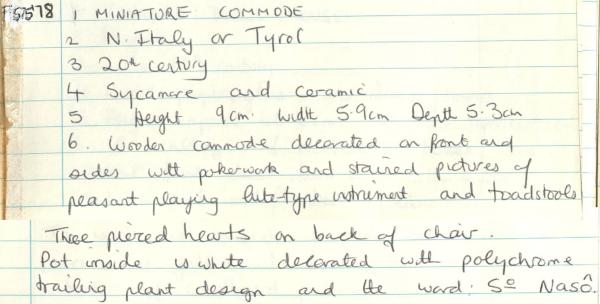 F5578 1 MINIATURE COMMODE
2 N. Italy or Tyrol
3 20th century
4 Sycamore and ceramic
5 Height 9cm. Width 5.9cm Depth 5.3cm
6. Wooden commode decorated on front and
sides with pokerwork and stained pictures of
peasant playing lute-type instrument and toadstools
Three pierced hearts on back of chair.
Pot inside is white decorated with polychrome
trailing plant design and the word: So Nasô.